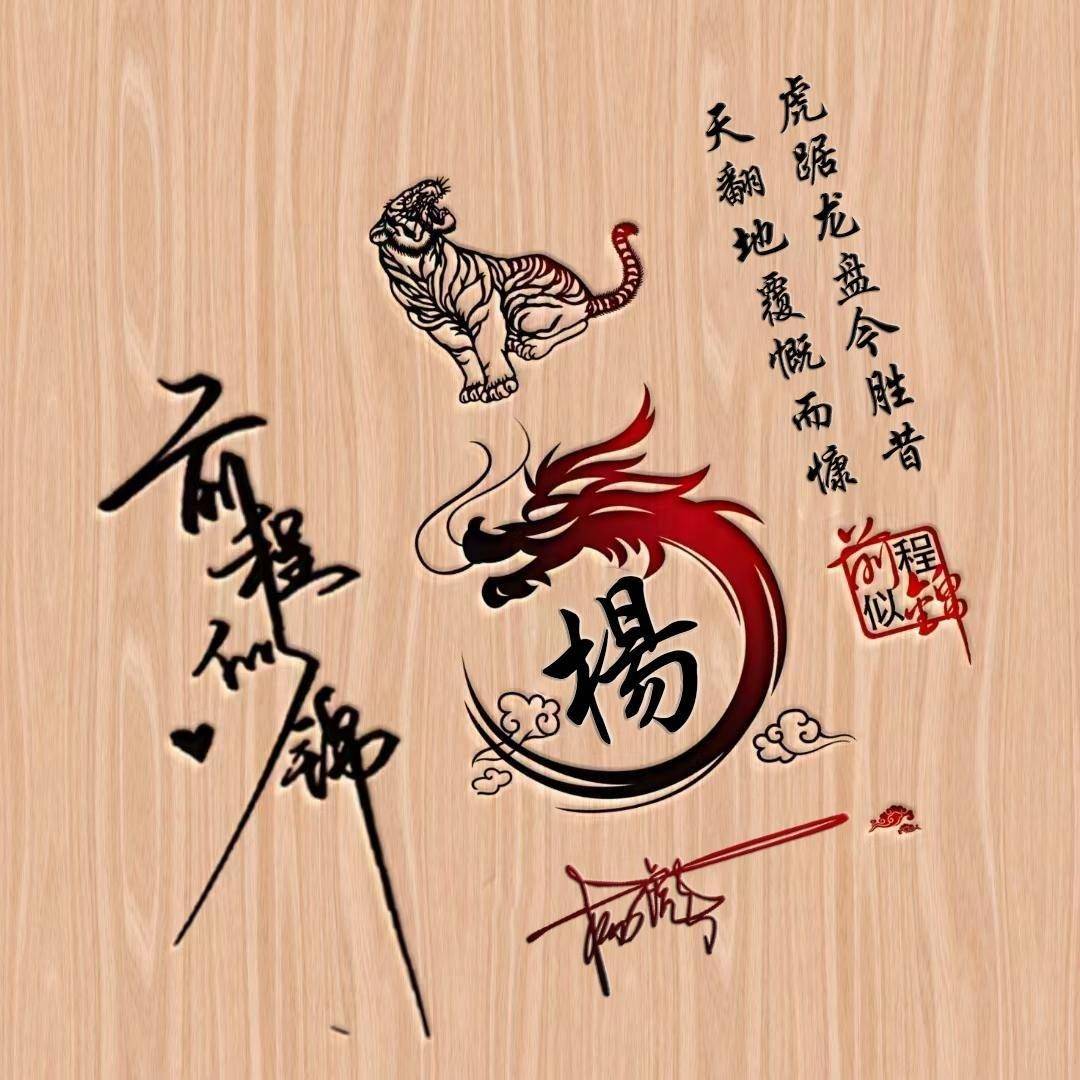 虎踞龙盘今胜昔
天翻地覆慨而慷
前程似锦
楊
前程似锦